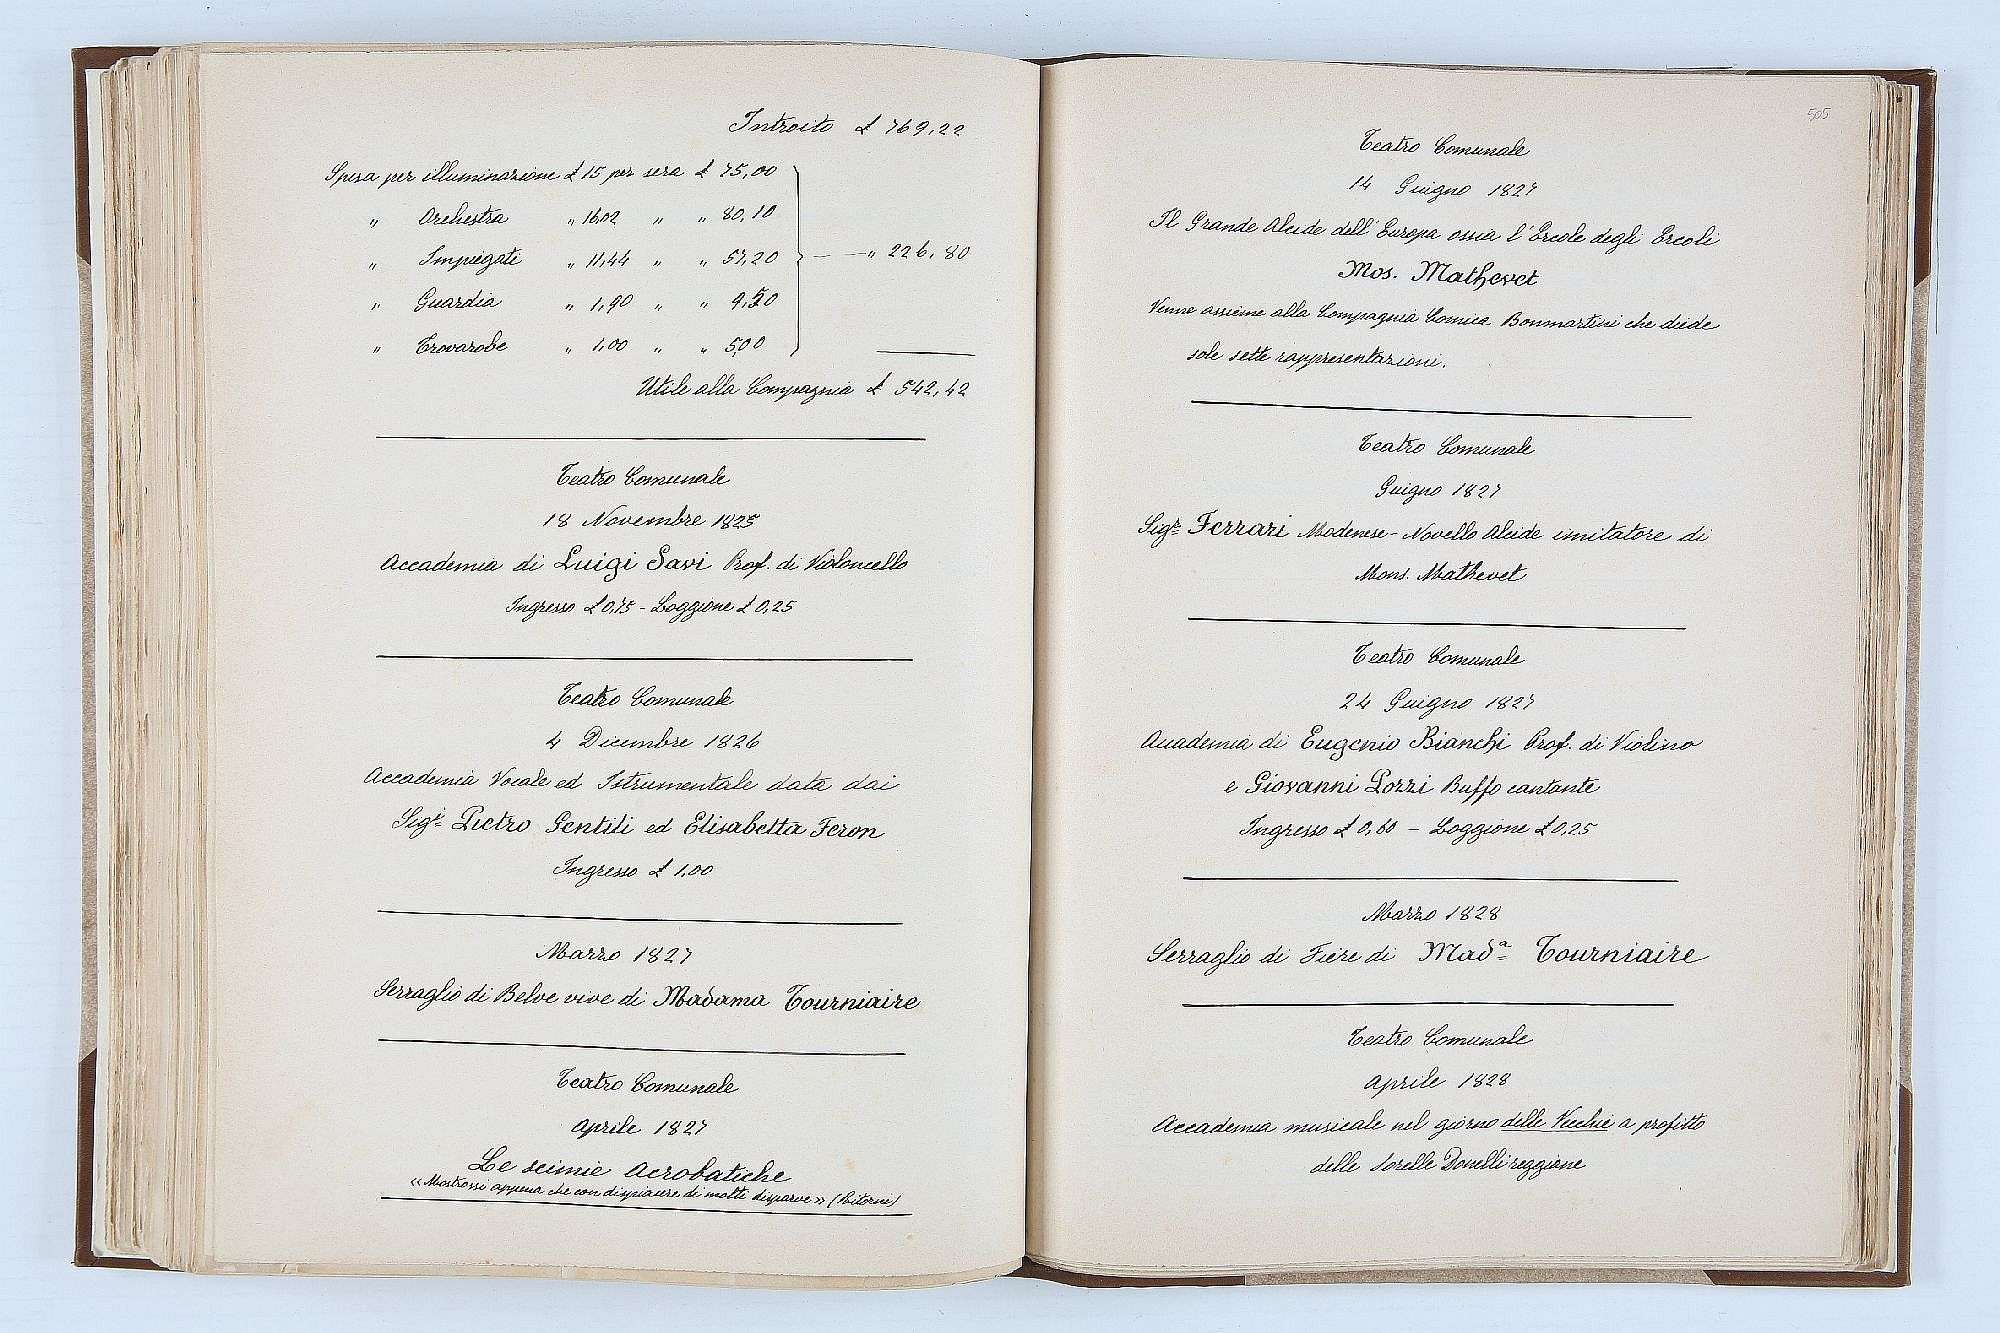 Introito £ 769,22
Spesa per illuminazione £ 15 per sera £ 75,00
" Orchestra " 16,02 " " 80,10
" Impiegati " 11,44 " " 57,20 — — " 226,80
" Guardia " 1,90 " " 9,50
" Trovarobe " 1,00 " " 5,00
Utile alla Compagnia £ 542,42
Teatro Comunale
18 Novembre 1825
Accademia di Luigi Savi Prof. di Violoncello
Ingresso £ 0,75 - Loggione £ 0,25
Teatro Comunale
4 Dicembre 1826
Accademia Vocale ed Istrumentale data dai
Sigri Pietro Gentili ed Elisabetta Feron
Ingresso £ 1,00
Marzo 1827
Serraglio di Belve vive di Madama Tourniaire
Teatro Comunale
Aprile 1827
Le scimie Acrobatiche
«Mostrossi appena che con dispiacere di molti disparve» (Ritorni)
505
Teatro Comunale
14 Giugno 1827
Il Grande Alcide dell'Europa ossia l'Ercole degli Ercoli
Mos. Mathevet
Venne assieme alla Compagnia Comica Bonmartini che diede
sole sette rappresentazioni.
Teatro Comunale
Giugno 1827
Sigr Ferrari Modenese - Novello Alcide imitatore di
Mons. Mathevet
Teatro Comunale
24 Giugno 1827
Accademia di Eugenio Bianchi Prof. di Violino
e Giovanni Pozzi Buffo cantante
Ingresso £ 0,60 - Loggione £ 0,25
Marzo 1828
Serraglio di Fiere di Mada Tourniaire
Teatro Comunale
Aprile 1828
Accademia musicale nel giorno delle Vecchie a profitto
delle Sorelle Donelli reggiane